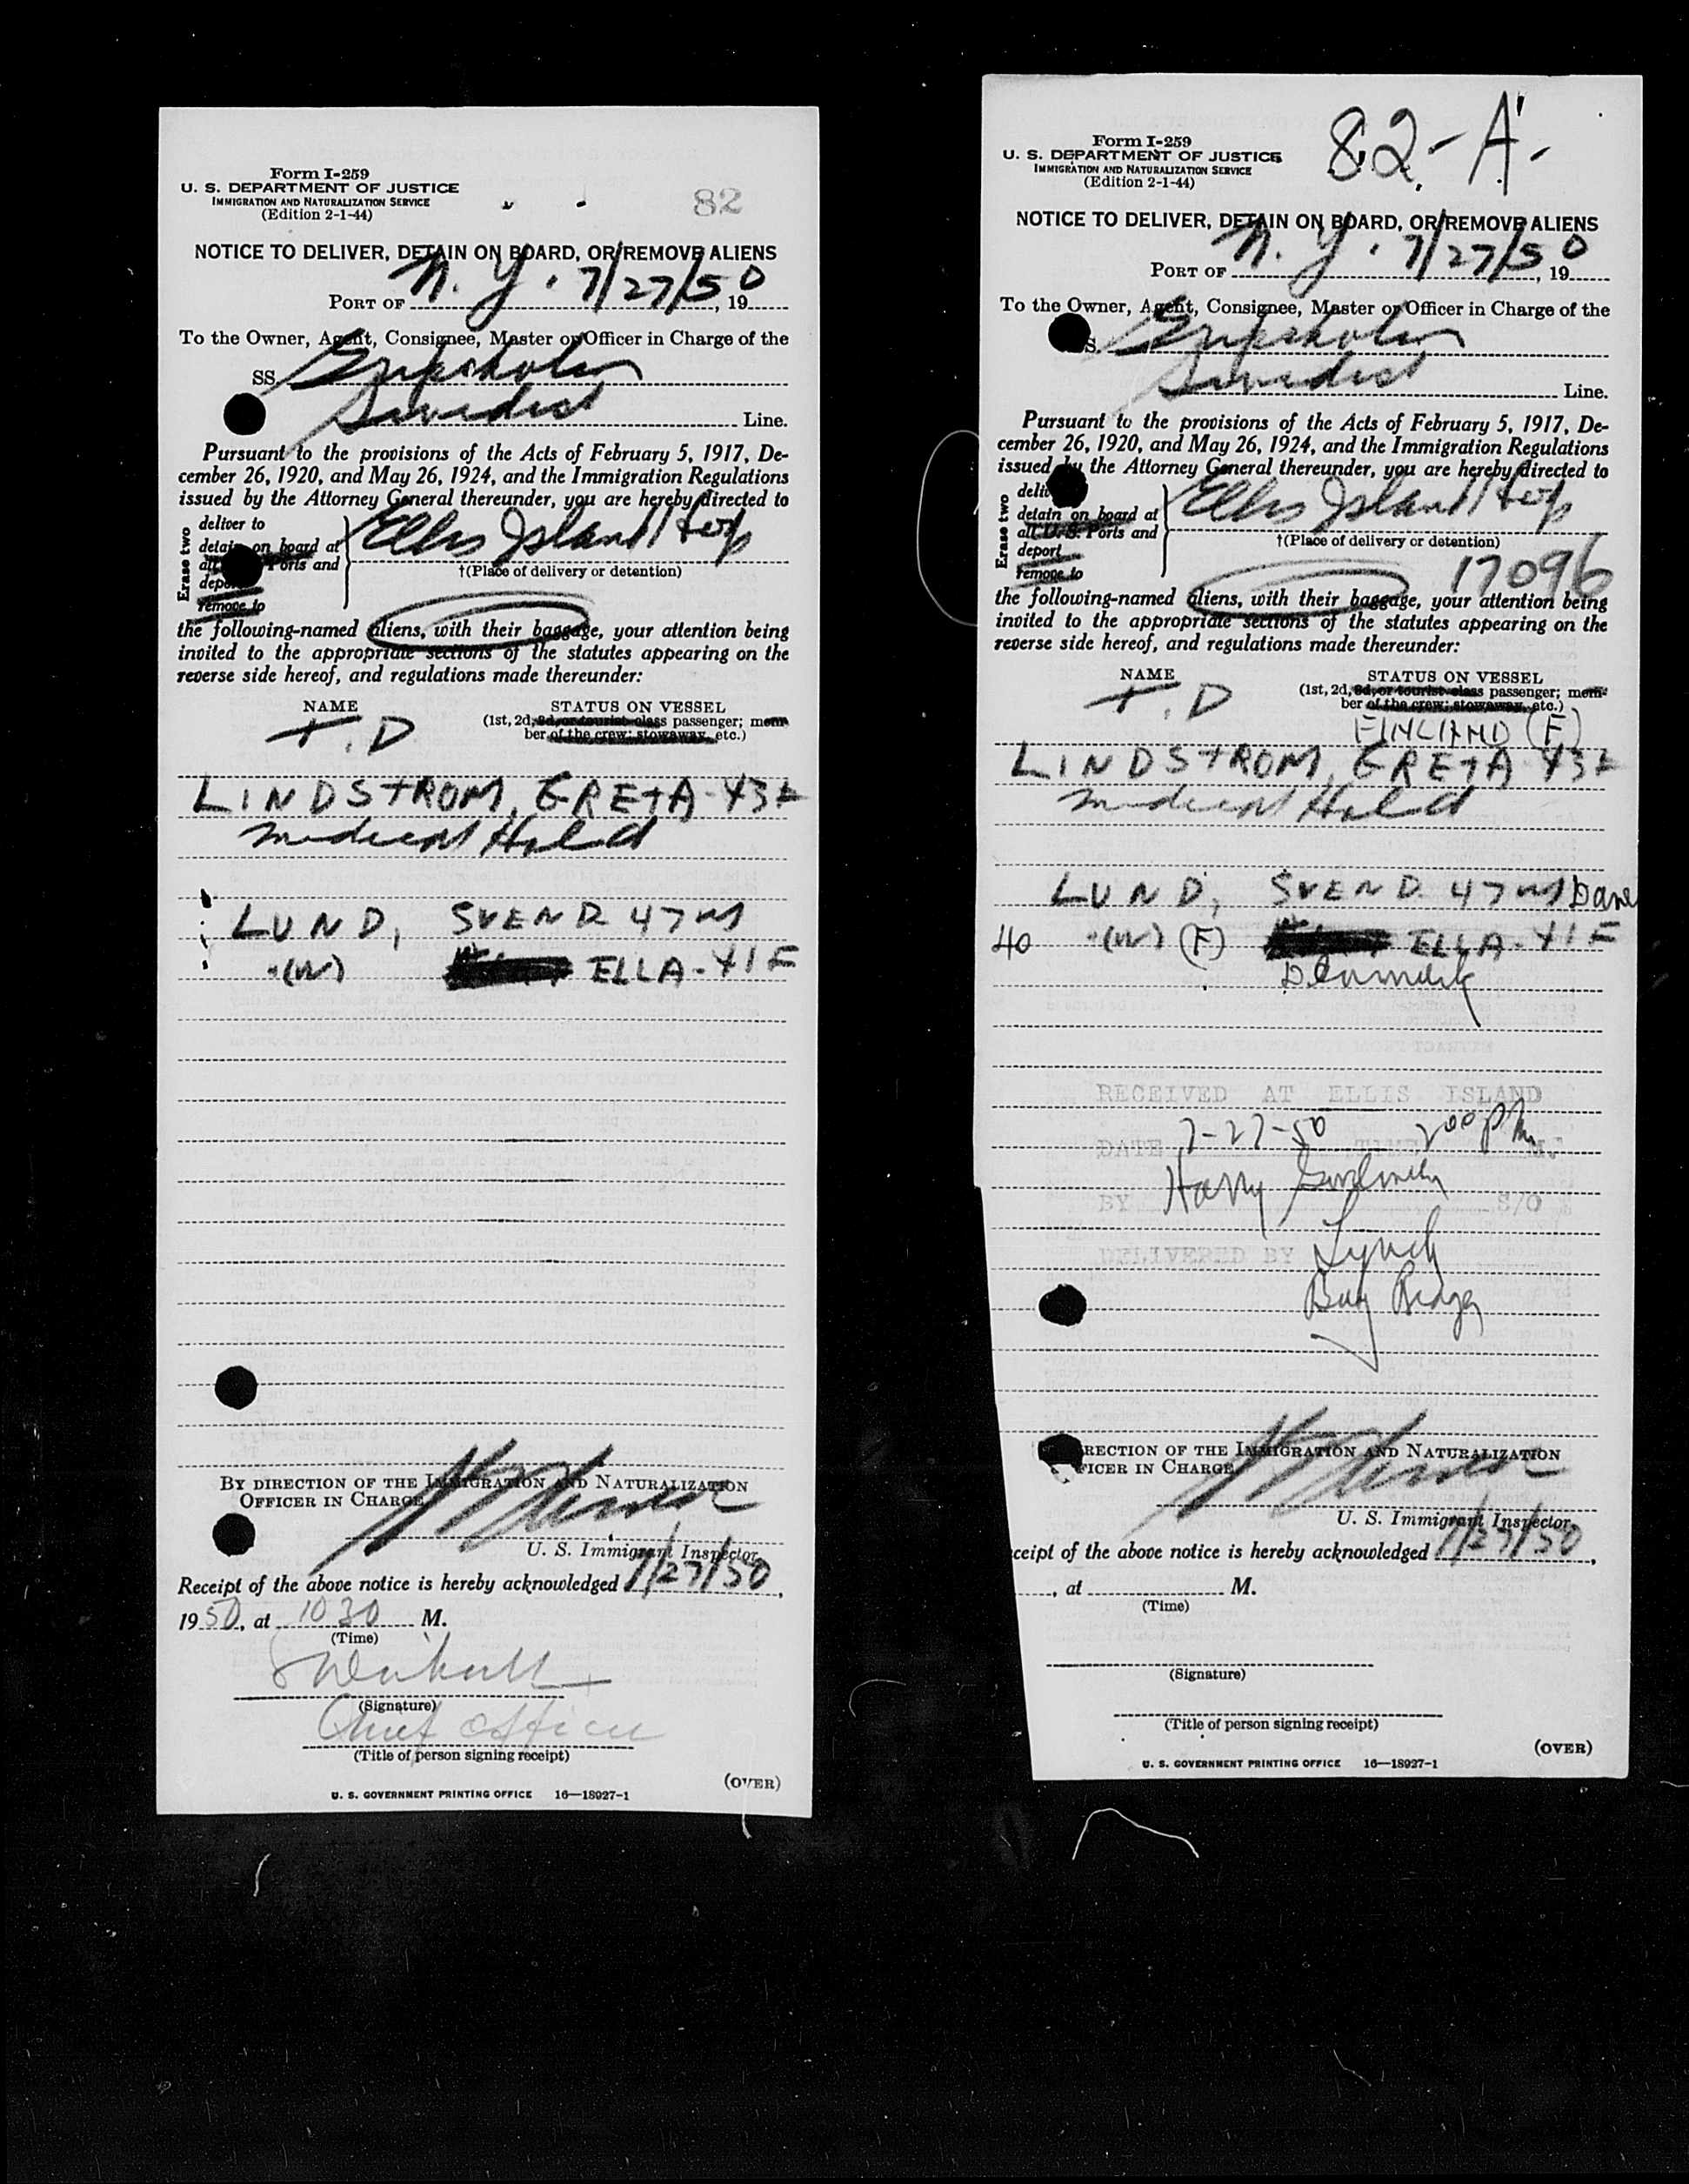 Form I-259
U. S. DEPARTMENT OF JUSTICE
IMMIGRATION AND NATURALIZATION SERVICE
(Edition 2-1-44)
82
NOTICE TO DELIVER, DETAIN ON BOARD, OR REMOVE ALIENS
PORT OF N. Y. 7/27/50, 19
To the Owner, Agent, Consignee, Master or Officer in Charge of the
SS. Gripsholm
Swedish Line.
Pursuant to the provisions of the Acts of February 5, 1917, De-
cember 26, 1920, and May 26, 1924, and the Immigration Regulations
issued by the Attorney General thereunder, you are hereby directed to
Erase two
deliver to
detain on board at
all Ports and
remove to
Ellis Island
†(Place of delivery or detention)
the following-named aliens, with their baggage, your attention being
invited to the appropriate sections of the statutes appearing on the
reverse side hereof, and regulations made thereunder:
NAME
STATUS ON VESSEL
(1st, 2d, 3d, or tourist class passenger; mem-
ber of the crew; stowaway, etc.)
T. D
LINDSTROM, GRETA - 43 F
Medical Hold
LUND, SVEND 47 M
"(W) ELLA - 41 F
BY DIRECTION OF THE IMMIGRATION AND NATURALIZATION
OFFICER IN CHARGE
U. S. Immigrant Inspector.
Receipt of the above notice is hereby acknowledged 7/27/50,
1950, at 10 30 M.
(Time)
(Signature)
Chief Officer
(Title of person signing receipt)
(OVER)
U. S. GOVERNMENT PRINTING OFFICE 16—18927-1
Form I-259
U. S. DEPARTMENT OF JUSTICE
IMMIGRATION AND NATURALIZATION SERVICE
(Edition 2-1-44)
82-A-
NOTICE TO DELIVER, DETAIN ON BOARD, OR REMOVE ALIENS
PORT OF N. Y. 7/27/50, 19
To the Owner, Agent, Consignee, Master or Officer in Charge of the
S. Gripsholm
Swedish Line.
Pursuant to the provisions of the Acts of February 5, 1917, De-
cember 26, 1920, and May 26, 1924, and the Immigration Regulations
issued by the Attorney General thereunder, you are hereby directed to
Erase two
detain on board at
all U.S. Ports and
deport
remove to
Ellis Island
†(Place of delivery or detention)
17096
the following-named aliens, with their baggage, your attention being
invited to the appropriate sections of the statutes appearing on the
reverse side hereof, and regulations made thereunder:
NAME
STATUS ON VESSEL
(1st, 2d, 3d, or tourist class passenger; mem-
ber of the crew; stowaway, etc.)
T. D
FINLAND (F)
LINDSTROM, GRETA 43 F
Medical Hold
LUND, SVEND 47 M Dane
40 "(W) (F) ELLA - 41 F
Denmark
RECEIVED AT ELLIS ISLAND
DATE 7-27-50 TIME 2 00 PM M.
BY Harry S/O
DELIVERED BY Lynch
Bay Ridge
RECTION OF THE IMMIGRATION AND NATURALIZATION
FICER IN CHARGE
U. S. Immigrant Inspector.
ceipt of the above notice is hereby acknowledged 7/27/50,
, at M.
(Time)
(Signature)
(Title of person signing receipt)
(OVER)
U. S. GOVERNMENT PRINTING OFFICE 16—18927-1